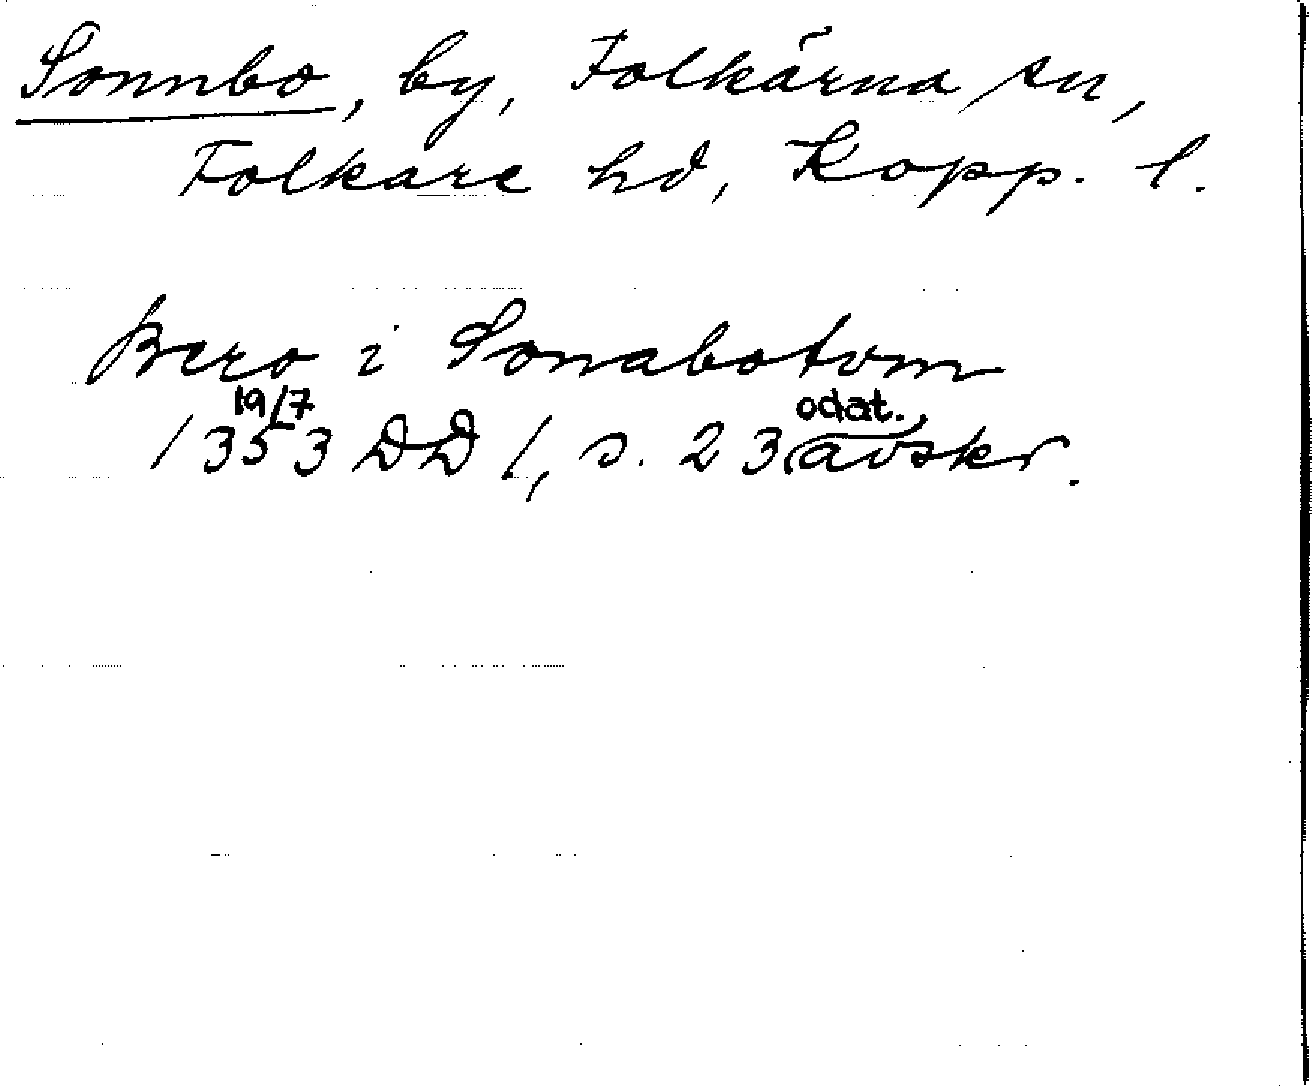 Sonnbo, by, Folkärna sn,
Folkare hd, Kopp. l.
Bero i Sonabotvm
19/7 odat.
1353 DD 1, s. 23 avskr.